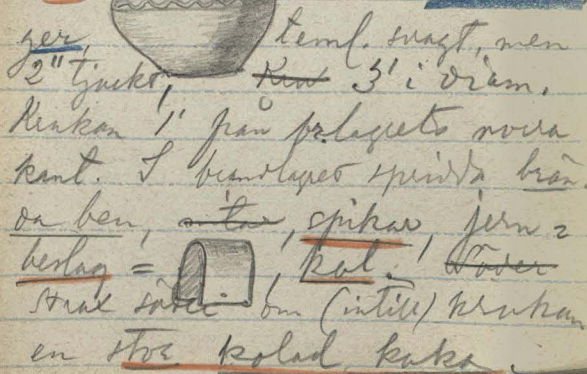 ger, teml. svagt, men
2" tjockt, 3' i diam.
Krukan 1' från br.lagrets norra
kant. I brandlagret spridda brän
da ben, spikar, jern=
beslag = , kol. Söder
strax söder om (intill) krukan
en stor kolad kaka.